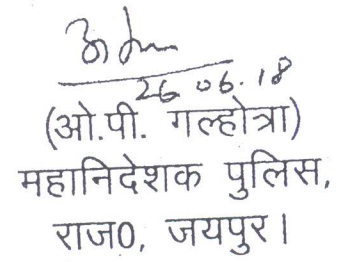 26.06.18
(ओ.पी. गल्होत्रा)
महानिदेशक पुलिस,
राज0, जयपुर।